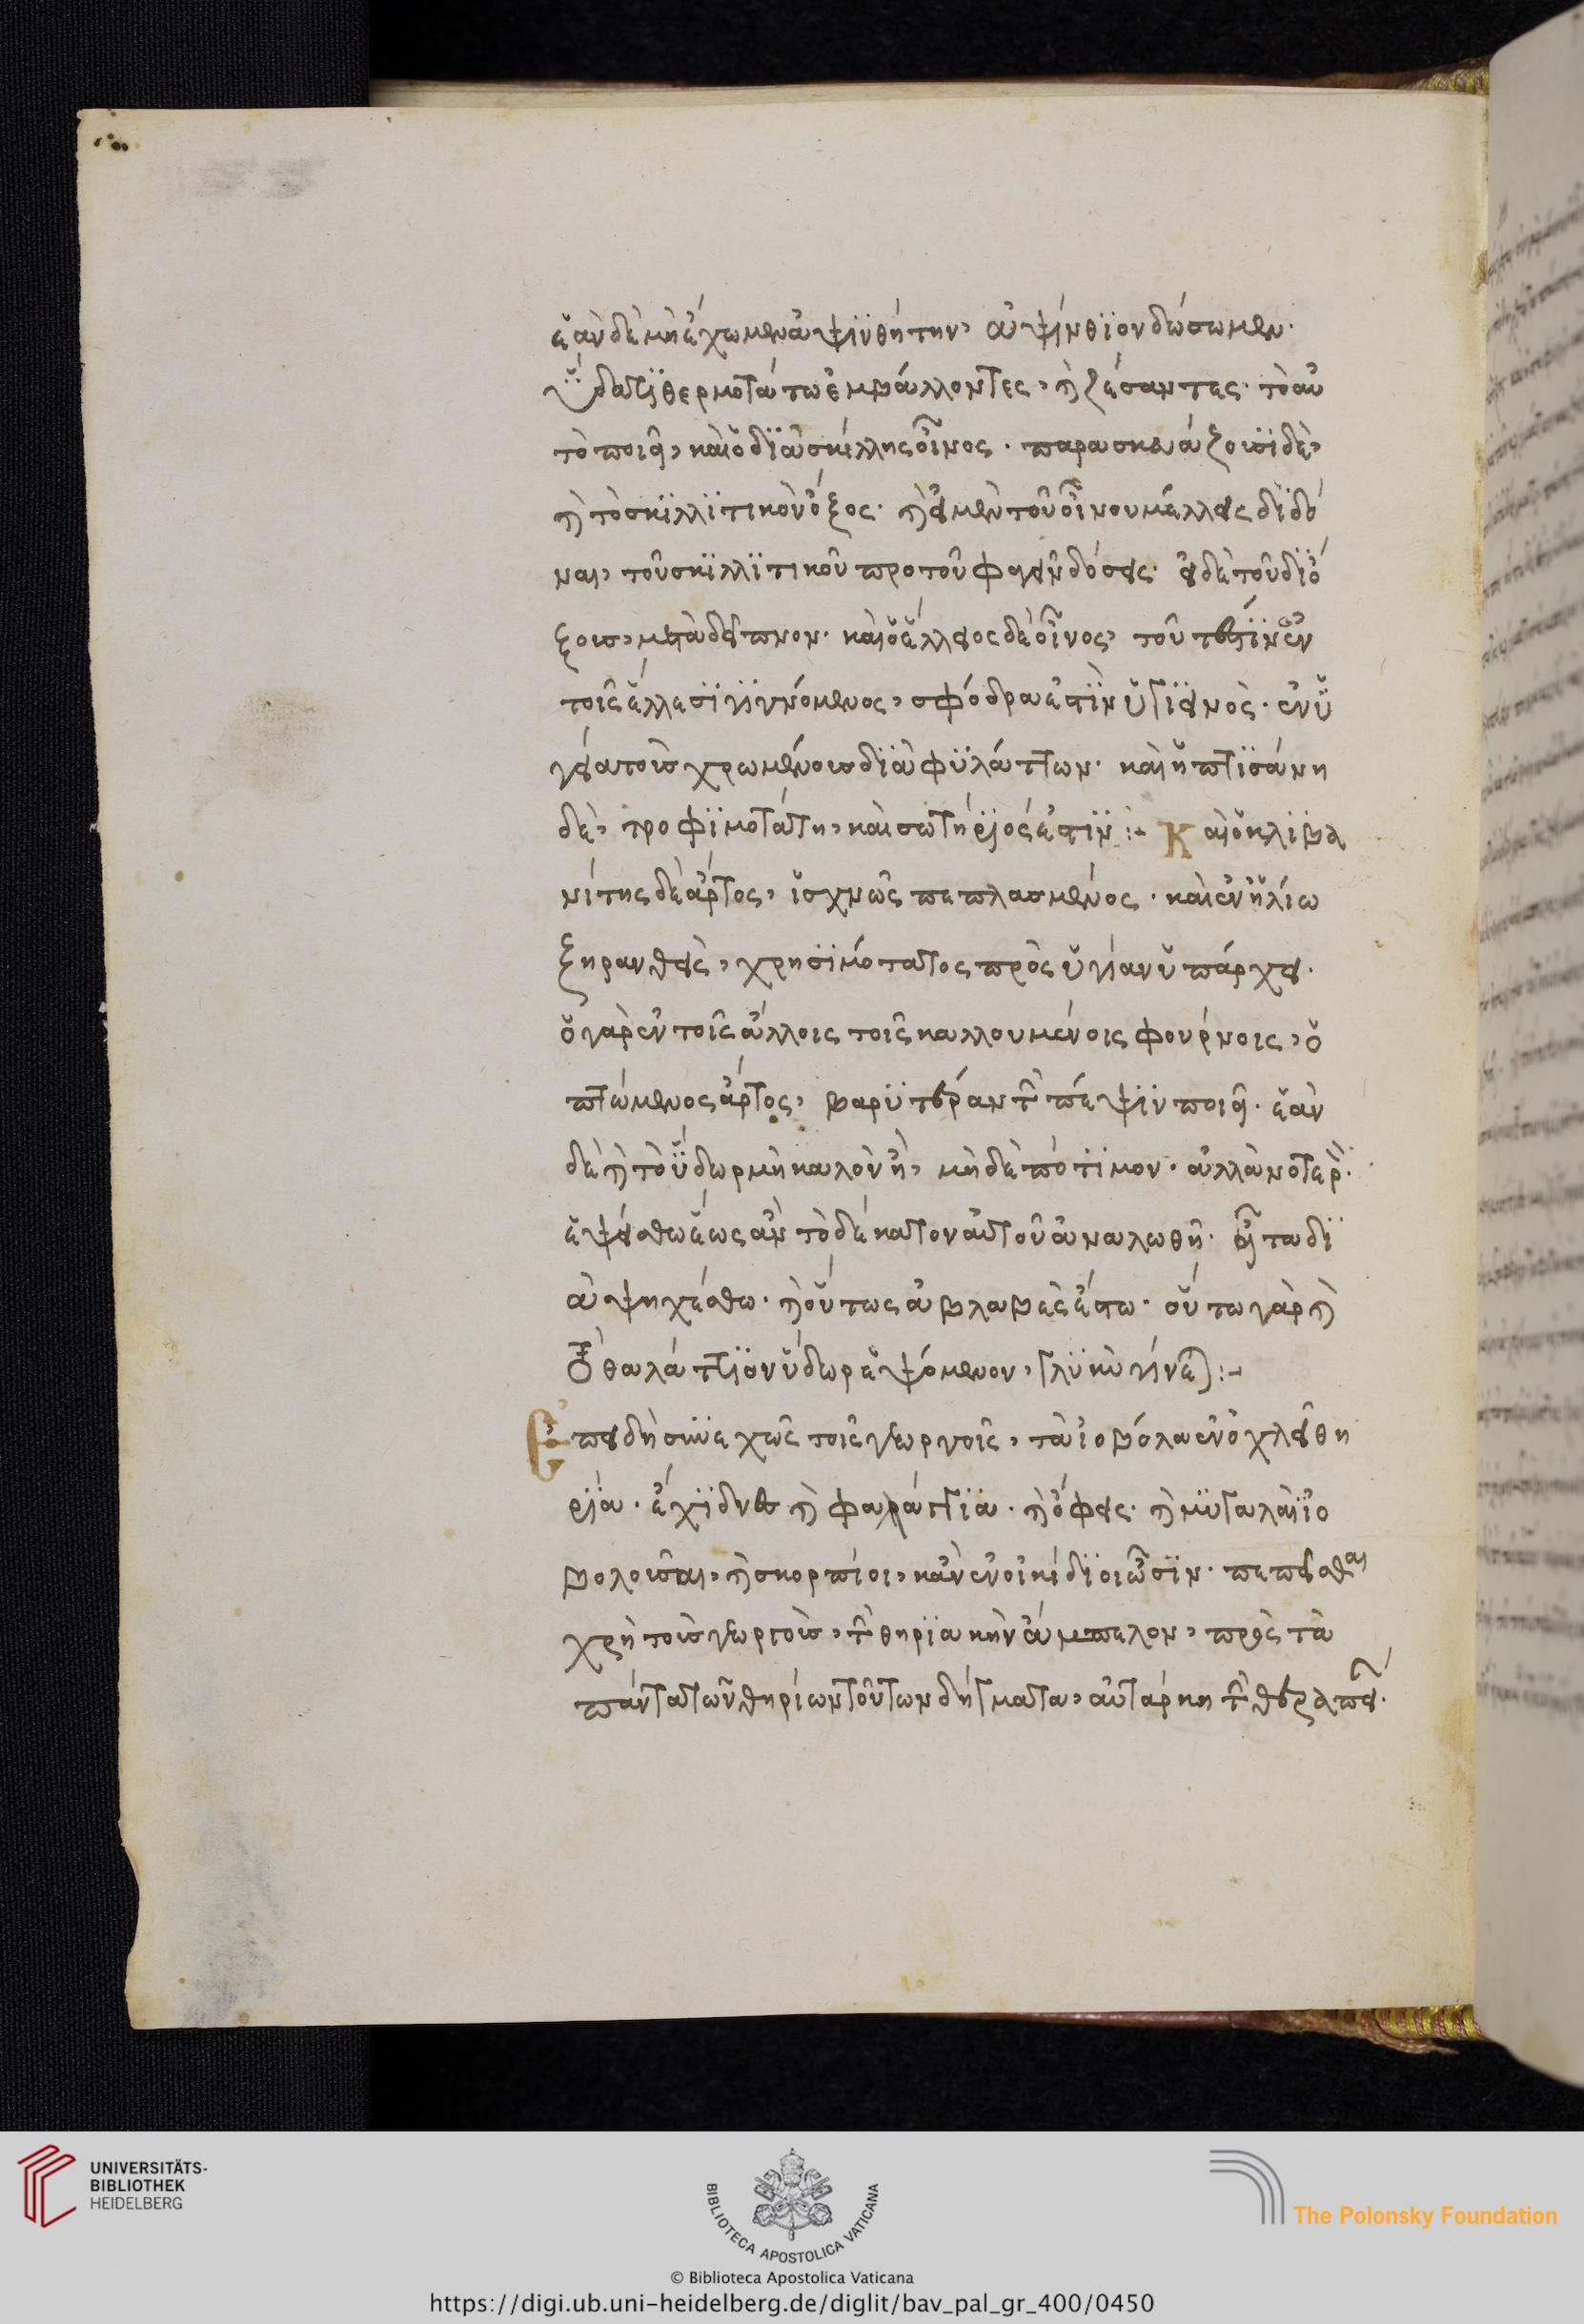 ἐὰν δὲ μὴ ἔχωμεν ἀψινθήτην, ἀψίνθϊον δώσωμεν·
ὕδατϊ θερμοτάτω ἐμβάλλοντες, ἢ ζέσαντες· τὸ αὐ
τὸ ποιεῖ, καὶ ὁ δϊὰ σκίλλης οἶνος· παρασκευάζουσϊ δὲ,
καὶ τὸ σκϊλλϊτικὸν ὄξος· καὶ εἰ μὲν τοῦ οἴνου μέλλεις δϊδό
ναι, τοῦ σκϊλλϊτικοῦ προτοῦ φαγεῖν δόσεις· εἰ δὲ τοῦ δϊ ὄ
ξους, μετὰ δεῖπνον· καὶ ὁ ἕλλειος δὲ οἶνος, τουτέστϊν ἐν
τοῖς ἕλλεσϊ γϊγνόμενος, σφόδρα ἐστϊν ὑγϊεινὸς· ἐν ὑ
γεία τοὺς χρωμένους δϊαφϋλάττων· καὶ ἡ πτϊσάνη
δὲ, τροφϊμοτάτη, καὶ σωτήριός ἐστϊν :- Καὶ ὁ κλϊβα
νίτης δὲ ἄρτος, ἰσχνῶς πεπλασμένος· καὶ ἐν ἡλίω
ξηρανθεὶς, χρησϊμότατος πρὸς ὑγίαν ὑπάρχει·
ὁ γὰρ ἐν τοῖς ἄλλοις τοῖς καλλουμένοις φούρνοις, ὀ
πτώμενος ἄρτος, βαρϋτέραν τὴν πέψϊν ποιεῖ· ἐὰν
δὲ καὶ τὸ ὕδωρ μὴ καλὸν ἦ, μὴ δὲ πότϊμον· ἀλλὰ νοτερὸν·
ἑψείσθω ἕως ἂν τὸ δέκατον αὐτοῦ ἀναλωθῆ· εἶτα δϊ
αψηχέσθω· καὶ οὕτως ἀβλαβὲς ἔστω· οὕτω γὰρ καὶ
τὸ θαλάττϊον ὕδωρ ἑψόμενον, γλϋκὺ γίνεται :-
Ἐπειδὴ συνεχῶς τοῖς γεωργοῖς, τὰ ἰοβόλα ἐνοχλεῖ θη
ρία· ἔχϊδναι καὶ φαλάγγϊα· καὶ ὄφεις· καὶ μϋγαλαὶ ϊο
βολοῦσαι, καὶ σκορπίοι, κἂν ἐνοικίδϊοι ὦσϊν· πεπεῖσθαι
χρὴ τοὺς γεωργοὺς, τὴν θηρϊακὴν ἄμπελον, πρὸς τὰ
πάντα τῶν θηρίων τούτων δήγματα, αὐτάρκη τὴν θεραπεί·
UNIVERSITÄTS-
BIBLIOTHEK
HEIDELBERG
BIBLIOTECA APOSTOLICA VATICANA
The Polonsky Foundation
© Biblioteca Apostolica Vaticana
https://digi.ub.uni-heidelberg.de/diglit/bav_pal_gr_400/0450